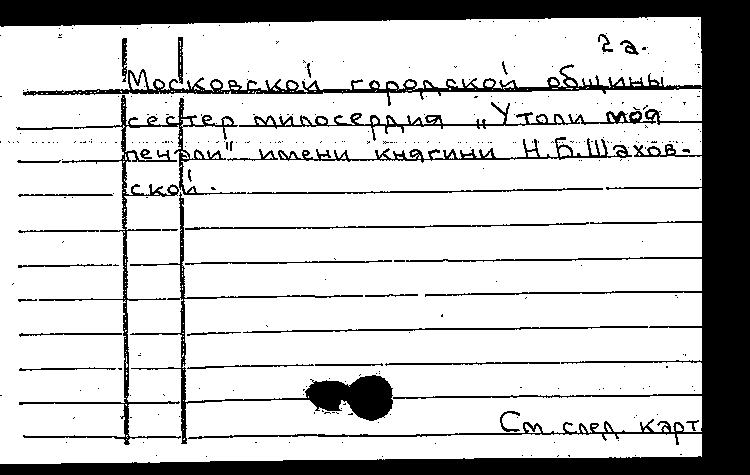 2а.
Московской городской общины
сестер милосердия „Утоли моя
печали" имени княгини Н.Б.Шахов-
ской.
См. след. карт.